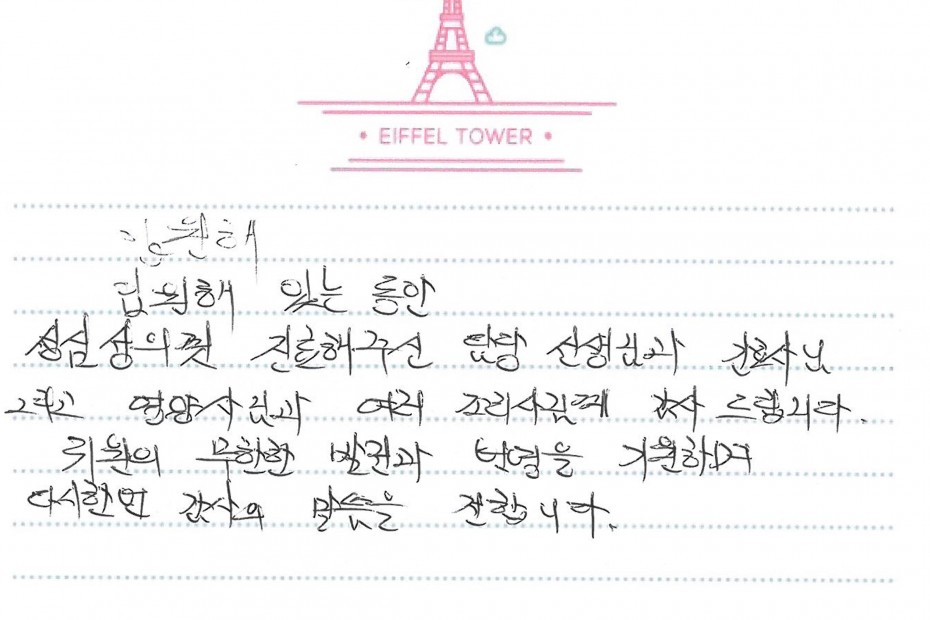 EIFFEL TOWER
입원해
입원해 있는 동안
성심성의껏 진료해주신 담당 선생님과 간호사님
그리고 영양사님과 여러 조리사님께 감사드립니다.
귀원의 무한한 발전과 번영을 기원하며
다시한번 감사의 말씀을 전합니다.